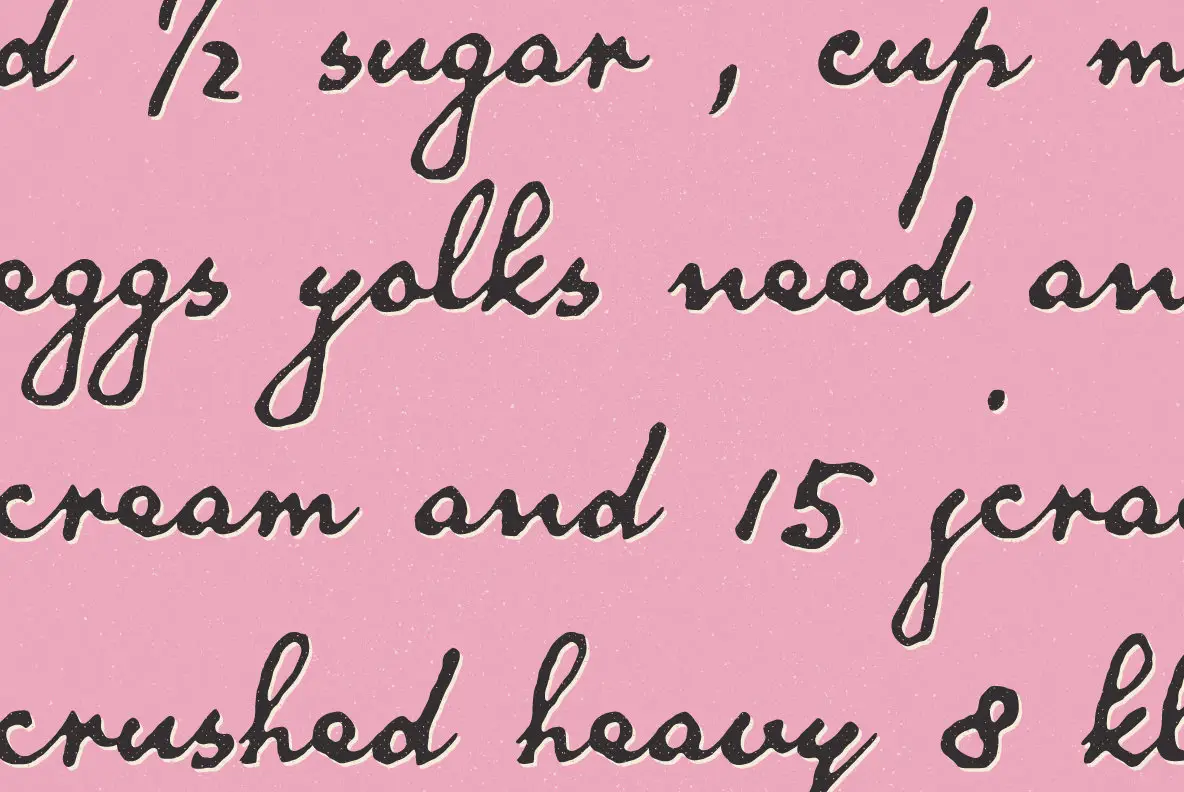 d ½ sugar , cup m
eggs yolks need an
cream and 15 jcra
crushed heavy 8 kb